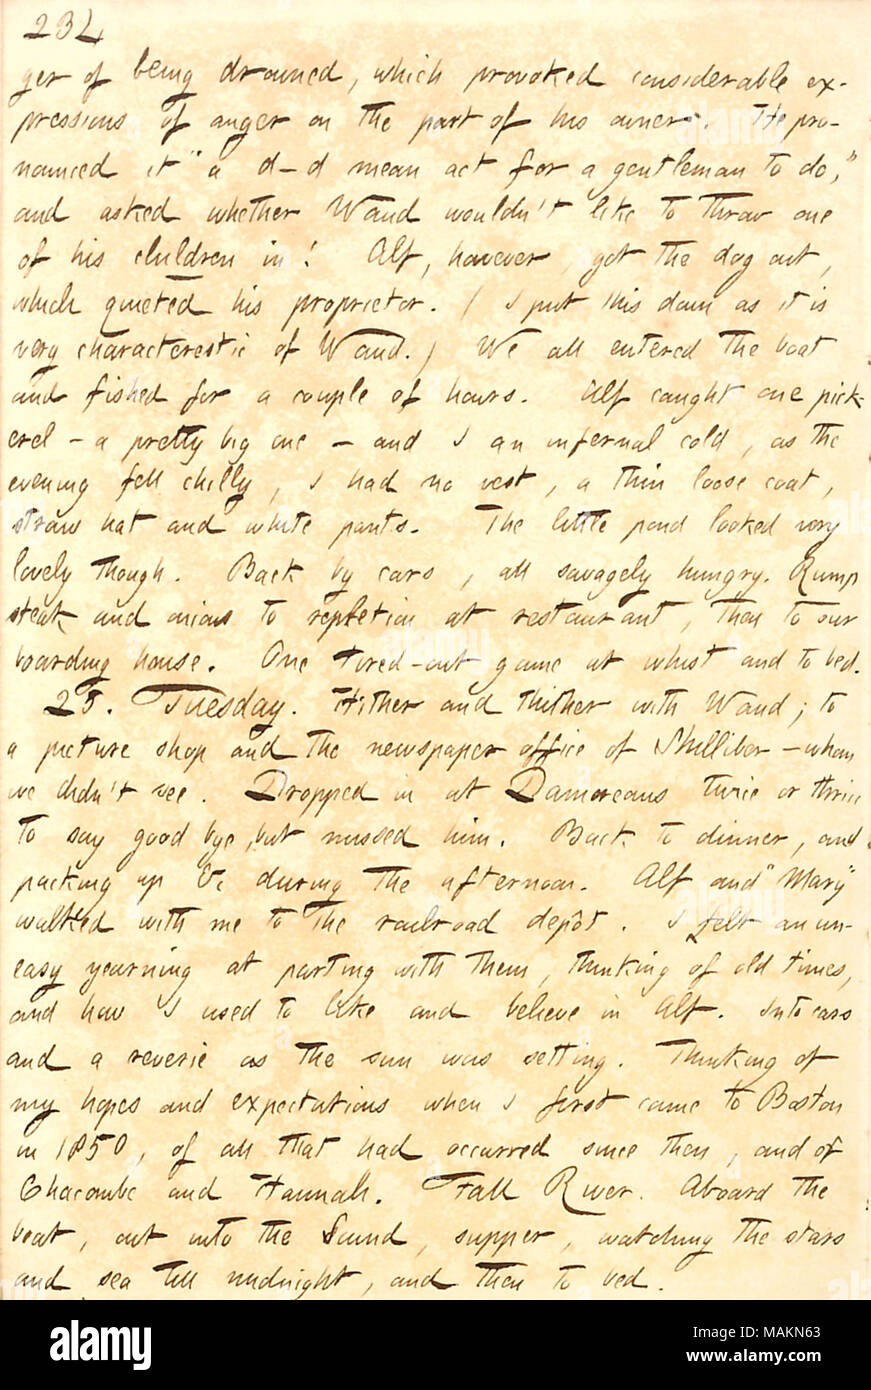 234
ger of being drowned, which provoked considerable ex-
pressions of anger on the part of his owner. He pro-
nounced it "a d—d mean act for a gentleman to do,"
and asked whether Waud wouldn't like to throw one
of his children in! Alf, however, got the dog out,
which quieted his proprietor. (I put this down as it is
very characterestic of Waud.) We all entered the boat
and fished for a couple of hours. Alf caught one pick-
erel — a pretty big one — and I an infernal cold, as the
evening fell chilly, I had no vest, a thin loose coat,
straw hat and white pants. The little pond looked very
lovely though. Back by cars, all savagely hungry. Rump
steak and onions to repletion at restaurant, then to our
boarding house. One tired-out game at whist and to bed.
25. Tuesday. Hither and thither with Waud; to
a picture shop and the newspaper office of Shilliber — whom
we didn't see. Dropped in at Damoreaus twice or thrice
to say good bye, but missed him. Back to dinner, and
packing up &c during the afternoon. Alf and "Mary"
walked with me to the railroad depôt. I felt an un-
easy yearning at parting with them, thinking of old times,
and how I used to like and believe in Alf. Into cars
and a reverie as the sun was setting. Thinking of
my hopes and expectations when I first came to Boston
in 1850, of all that had occurred since then, and of
Chacombe and Hannah. Fall River. Aboard the
boat, out into the Sound, supper, watching the stars
and sea till midnight, and then to bed.
alamy
Image ID: MAKN63
www.alamy.com